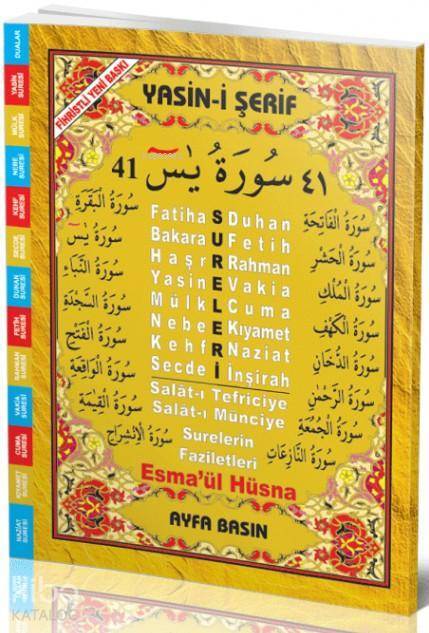 FİHRİSTLİ YENİ BASKI
YASİN-İ ŞERİF
41 سُورَةُ يٰسٓ ٤١
Fatiha Duhan
Bakara Fetih
Haşr Rahman
Yasin Vakia
Mülk Cuma
Nebe Kıyamet
Kehf Naziat
Secde İnşirah
SURELERİ
سُورَةُ الْبَقَرَةِ
سُورَةُ يٰسٓ
سُورَةُ النَّبَأِ
سُورَةُ السَّجْدَةِ
سُورَةُ الْفَتْحِ
سُورَةُ الْوَاقِعَةِ
سُورَةُ الْقِيٰمَةِ
سُورَةُ الْاِنْشِرَاحِ
سُورَةُ الْفَاتِحَةِ
سُورَةُ الْحَشْرِ
سُورَةُ الْمُلْكِ
سُورَةُ الْكَهْفِ
سُورَةُ الدُّخَانِ
سُورَةُ الرَّحْمٰنِ
سُورَةُ الْجُمُعَةِ
سُورَةُ النَّازِعَاتِ
Salât-ı Tefriciye
Salât-ı Münciye
Surelerin
Faziletleri
Esma'ül Hüsna
AYFA BASIN
DUALAR
YASİN SURESİ
MÜLK SURESİ
NEBE SURESİ
KEHF SURESİ
SECDE SURESİ
DUHAN SURESİ
FETİH SURESİ
RAHMAN SURESİ
VAKIA SURESİ
CUMA SURESİ
KIYAMET SURESİ
NAZİAT SURESİ
KATALOG